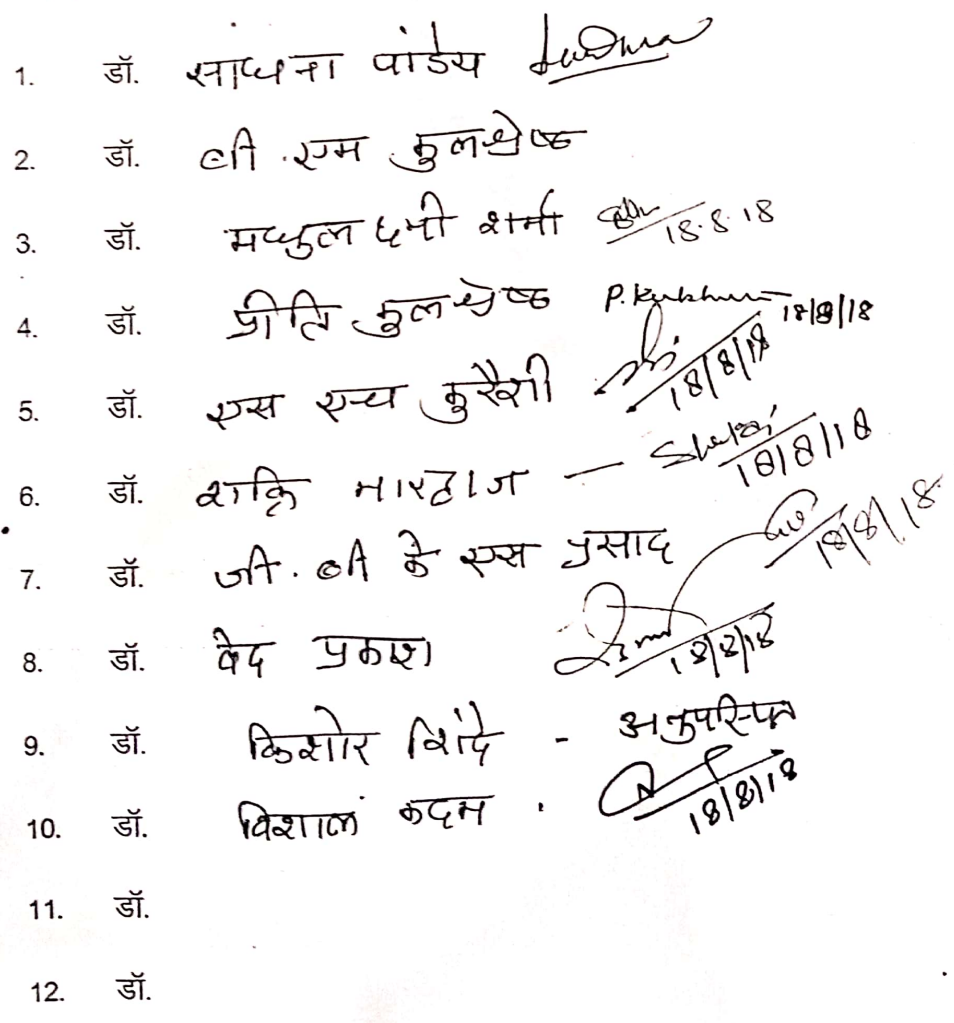 1. डॉ. साधना पांडेय
2. डॉ. बी. एम कुलश्रेष्ठ
3. डॉ. शर्मा 18.8.18
4. डॉ. प्रीति कुलश्रेष्ठ P. 18/8/18
5. डॉ. एस एच कुरैशी 18/8/18
6. डॉ. शक्ति भारद्वाज - 18/8/18
7. डॉ. जी. बी के एस प्रसाद 18/8/18
8. डॉ. वेद प्रकाश 18/8/18
9. डॉ. किशोर शिंदे - अनुपस्थित
10. डॉ. विशाल कदम . 18/8/18
11. डॉ.
12. डॉ.